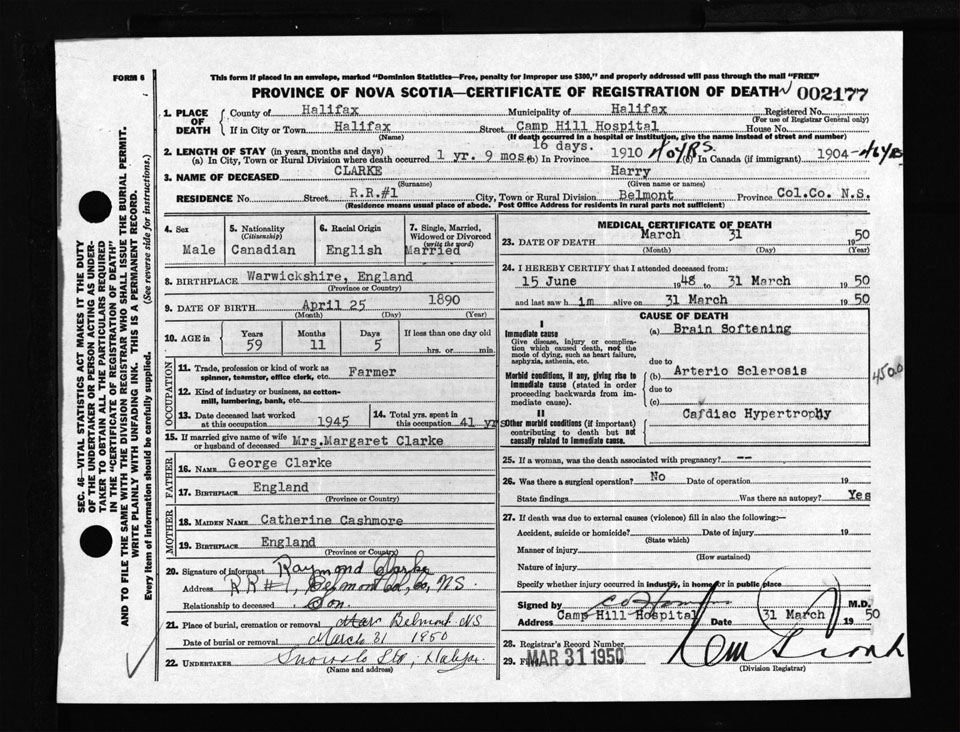 FORM 6
This form if placed in an envelope, marked "Dominion Statistics—Free, penalty for improper use $300," and properly addressed will pass through the mail "FREE"
PROVINCE OF NOVA SCOTIA—CERTIFICATE OF REGISTRATION OF DEATH 002177
1. PLACE OF DEATH
County of Halifax Municipality of Halifax Registered No.
(For use of Registrar General only)
If in City or Town Halifax Street Camp Hill Hospital House No.
(Name) (If death occurred in a hospital or institution, give the name instead of street and number)
2. LENGTH OF STAY (in years, months and days) 16 days.
(a) In City, Town or Rural Division where death occurred 1 yr. 9 mos (b) In Province 1910 40 YRS (c) In Canada (if immigrant) 1904- 46 YRS
3. NAME OF DECEASED CLARKE Harry
(Surname) (Given name or names)
RESIDENCE No. Street R.R.#1 City, Town or Rural Division Belmont Province Col.Co. N.S.
(Residence means usual place of abode. Post Office Address for residents in rural parts not sufficient)
4. Sex
Male
5. Nationality
(Citizenship)
Canadian
6. Racial Origin
English
7. Single, Married, Widowed or Divorced
(write the word)
Married
8. BIRTHPLACE Warwickshire, England
(Province or Country)
9. DATE OF BIRTH April 25 1890
(Month) (Day) (Year)
10. AGE in
Years Months Days If less than one day old
59 11 5 hrs. or min.
OCCUPATION
11. Trade, profession or kind of work as spinner, teamster, office clerk, etc. Farmer
12. Kind of industry or business, as cotton-mill, lumbering, bank, etc.
13. Date deceased last worked at this occupation 1945
14. Total yrs. spent in this occupation 41 yrs
15. If married give name of wife or husband of deceased Mrs.Margaret Clarke
FATHER
16. NAME George Clarke
17. BIRTHPLACE England
(Province or Country)
MOTHER
18. MAIDEN NAME Catherine Cashmore
19. BIRTHPLACE England
(Province or Country)
20. Signature of informant Raymond Clarke
Address RR#1, Belmont Col, Co, N.S.
Relationship to deceased Son.
21. Place of burial, cremation or removal Belmont N.S
Date of burial or removal March 31 1950
22. UNDERTAKER Halifax.
(Name and address)
MEDICAL CERTIFICATE OF DEATH
23. DATE OF DEATH March 31 1950
(Month) (Day) (Year)
24. I HEREBY CERTIFY that I attended deceased from:
15 June 1948 to 31 March 1950
and last saw h im alive on 31 March 1950
CAUSE OF DEATH
I
Immediate cause
Give disease, injury or complication which caused death, not the mode of dying, such as heart failure, asphyxia, asthenia, etc.
(a) Brain Softening
due to
Morbid conditions, if any, giving rise to immediate cause (stated in order proceeding backwards from immediate cause).
(b) Arterio Sclerosis
due to
(c)
4500
II
Other morbid conditions (if important) contributing to death but not causally related to immediate cause.
Cardiac Hypertrophy
25. If a woman, was the death associated with pregnancy? --
26. Was there a surgical operation? No Date of operation 19
State findings Was there an autopsy? Yes
27. If death was due to external causes (violence) fill in also the following:—
Accident, suicide or homicide? Date of injury 19
(State which)
Manner of injury
(How sustained)
Nature of injury
Specify whether injury occurred in industry, in home or in public place
Signed by M.D.
Address Camp Hill Hospital Date 31 March 1950
28. Registrar's Record Number
29. MAR 31 1950
(Division Registrar)
SEC. 46—VITAL STATISTICS ACT MAKES IT THE DUTY
OF THE UNDERTAKER OR PERSON ACTING AS UNDER-
TAKER TO OBTAIN ALL THE PARTICULARS REQUIRED
IN THE "CERTIFICATE OF REGISTRATION OF DEATH"
AND TO FILE THE SAME WITH THE DIVISION REGISTRAR WHO SHALL ISSUE THE BURIAL PERMIT.
WRITE PLAINLY WITH UNFADING INK. THIS IS A PERMANENT RECORD.
Every item of information should be carefully supplied. (See reverse side for instructions.)